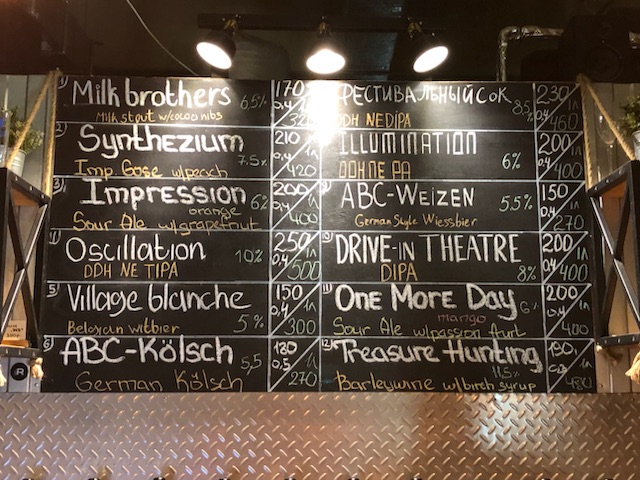 1) Milk brothers 6.5% 170
0.4 1л
Milk stout w/cocoa nibs
2) Synthezium 7.5% 210 1л
0.4
Imp Gose w/peach 420
3) Impression 6% 200 1л
0.4
orange
Sour Ale w/grapefruit 400
Oscillation 10% 250 1л
0.4
DDH NE TIPA 500
5) Village blanche 150 1л
0.4
Belgian witbier 5% 300
6) ABC-Kölsch 5,5 180 1л
0.5
German Kölsch 270
ФЕСТИВАЛЬНЫЙ СОК 8.5% 230 1л
0.4
DDH NEDIPA 460
ILLUMINATION 200 1л
0.4
DDH NE PA 6% 400
ABC-WEIZEN 5.5% 150
0.4
German Style Wiessbier 270
10) DRIVE-IN THEATRE 200 1л
0.4
DIPA 8% 400
11) ONE MORE DAY 6% 200
0.4
mango
Sour Ale w/passion frurt 400
12) Treasure Hunting 190
11.5%
Barleywine w/birch syrup 480